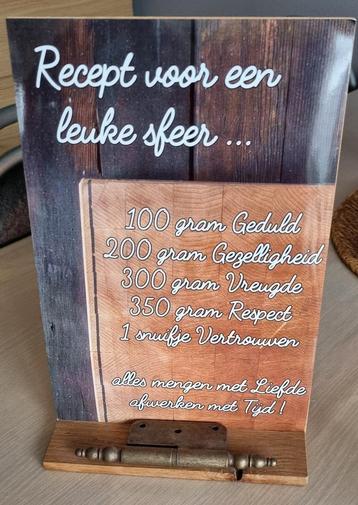 Recept voor een
leuke sfeer ...
100 gram Geduld
200 gram Gezelligheid
300 gram Vreugde
350 gram Respect
1 snuifje Vertrouwen
alles mengen met Liefde
afwerken met Tijd !